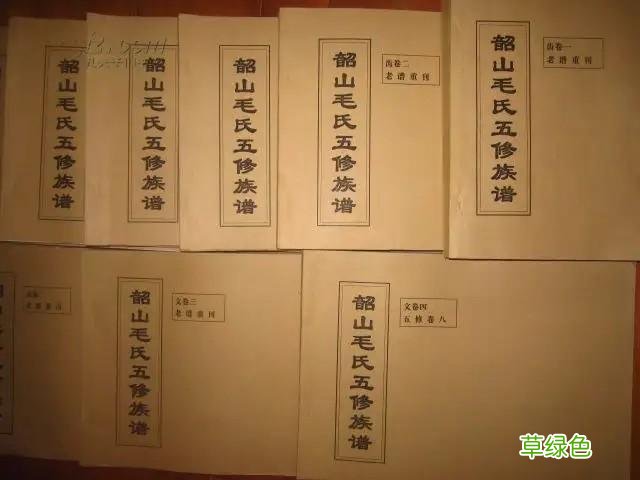 韶山毛氏五修族谱
韶山毛氏五修族谱
韶山毛氏五修族谱
韶山毛氏五修族谱
卷二
老谱重刊
韶山毛氏五修族谱
卷一
老谱重刊
韶山毛氏五修族谱
文卷三
老谱重刊
韶山毛氏五修族谱
文卷四
五修卷八
草绿色